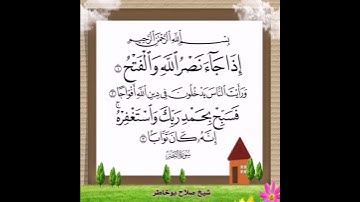 بِسْمِ اللَّهِ الرَّحْمَٰنِ الرَّحِيمِ
إِذَا جَآءَ نَصْرُ اللَّهِ وَالْفَتْحُ ١
وَرَأَيْتَ النَّاسَ يَدْخُلُونَ فِي دِينِ اللَّهِ أَفْوَاجًا ٢
فَسَبِّحْ بِحَمْدِ رَبِّكَ وَاسْتَغْفِرْهُ ۚ
إِنَّهُ كَانَ تَوَّابًا ٣
سورة النصر
شيخ صلاح بوخاطر